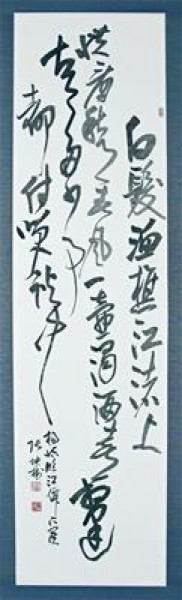 白髮漁樵江渚上
慣看秋月春風一壺濁酒喜相逢
古今多少事
都付笑談中
楊慎臨江仙
張